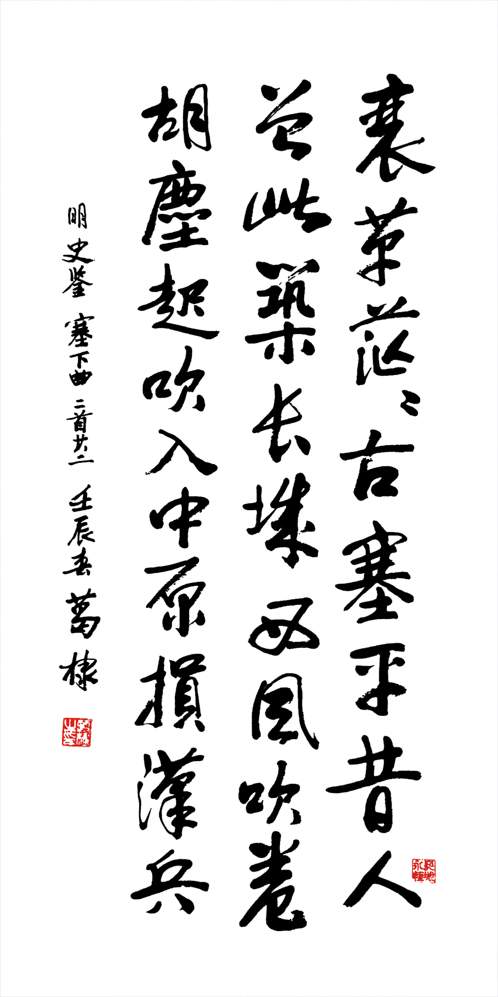 衰草茫〻古塞平昔人
曾此築长城西風吹卷
胡塵起吹入中原損漢兵
明史鉴塞下曲二首其二 壬辰春葛棣